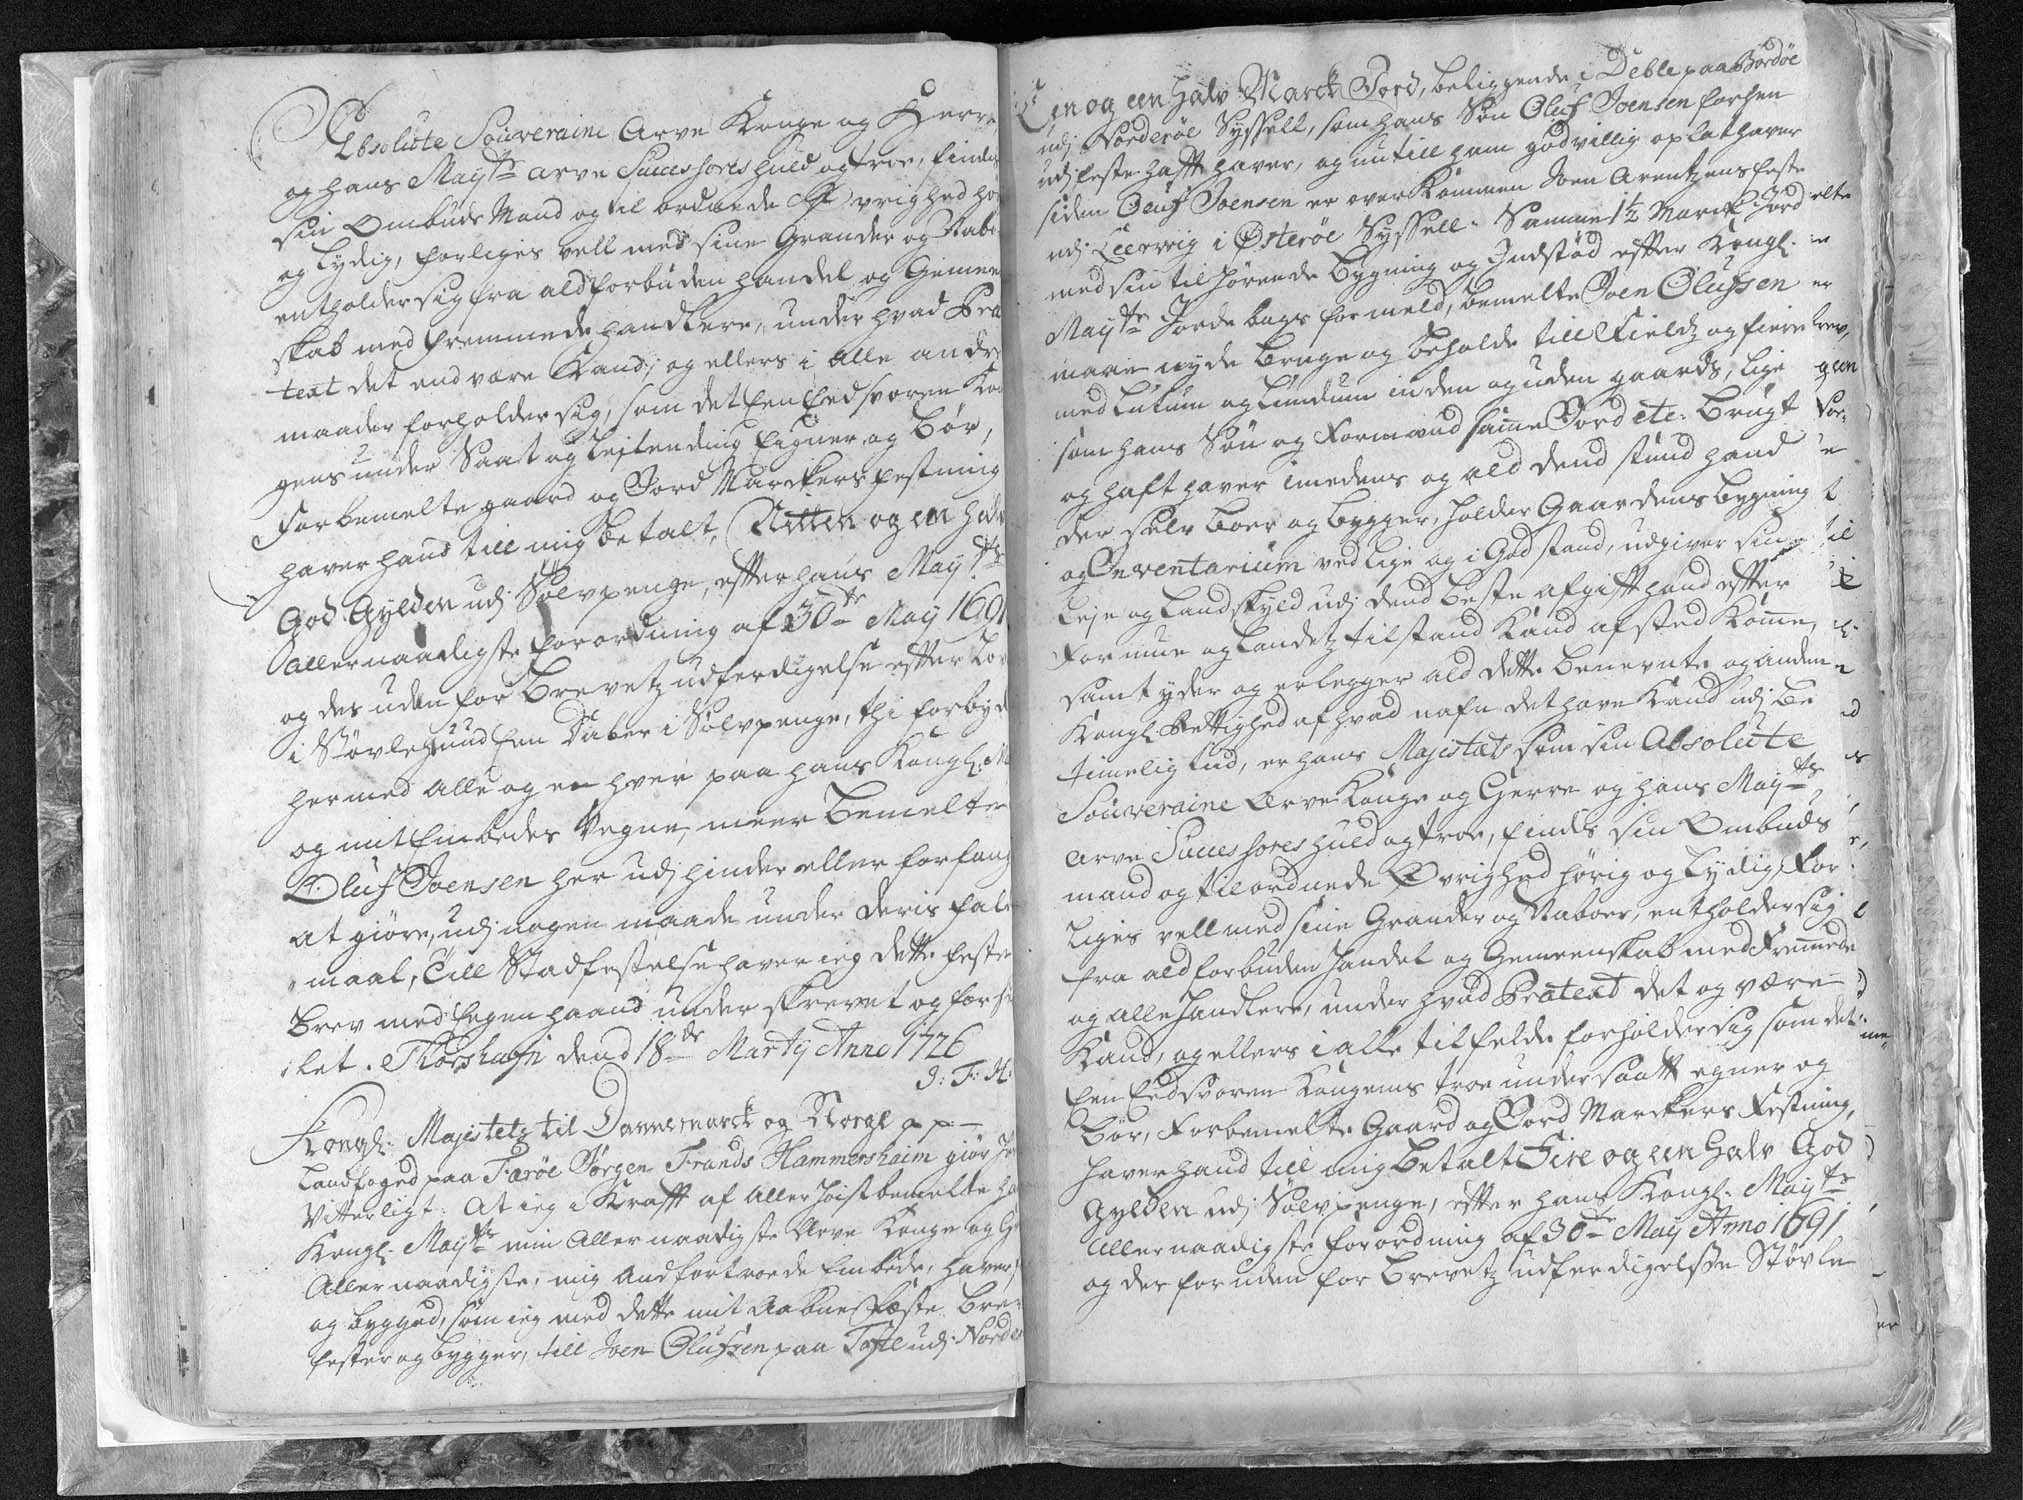 Absolute Souveraine Arve Konge og Herre
og hans Mayts arve Successores huld og troe, findis
sin Ombuds Mand og til ordnede Øfvrighed hø
og Lydig, forliges vell med sine Grander og Nabo
entholder sig fra ald forbuden handel og Gemeen
skab med fremmede handlere, under hvad Præ
text det end være Kand, og ellers i alle andre
maader forholder sig, som det Een Eedsvoren Kon
gens under Saat og Leilending Eigner og Bør,
Forbemelte gaard og Jord Marckers festning
haver hand till mig betalt, Nitten og en halv
God Gylden udj Sølvpenge, efter hans Mayts
allernaadigste forordning af 30te May 1691
og des uden for Brevetz udferdigelse efter Lov
i Støvle hund Een Daler i Sølvpenge, thi forbyd
hermed alle og en hver paa hans Kongl: M
og mit Embedes Vegne, meer bemelte
Oluf Joensen her udj hinder eller forfang
at giøre, udj nogen maade under deris fals
maal, Till Stadfestelse haver ieg dette feste
Brev med Eegen haand under skrevet og forse
ilet. Thorshafn dend 18de Marty Anno 1726
J: F: H:
Kongl: Majestetz til Dannemarck og Norge p p
Landfoged paa Færøe Jørgen Frands Hammershaim giør he
Vitterligt: At ieg i Krafft af Aller høist bemelte ha
Kongl. Mayts min Aller naadigste Arve Konge og H
Allernaadigste, mig anfortroede Embede, haver f
og bygged, som ieg med dette mit aabne Fæste Brev
fester og bygger, till Joen Olufsen paa Tofte udj Norder
En og een halv Marck Jord, beliggende i Deble paa Bordøe
udj Norderøe Syssell, som hans Søn Oluf Joensen forhen
udj feste hafft haver, og nu till ham godvillig oplat haver
siden Oluf Joensen er overkommen Joen Arentzens feste
udj Leerwig i Østerøe Syssell. Samme 1½ Marck Jord
med sin tilhørende Bygning og Indstød efter Kongl.
Mayts Jordebogs formeld, bemelte Joen Olufsen
maae nyde Bruge og beholde till Fieldz og fiere
med Lutum og Lundum inden og uden gaards, lige
som hans Søn og Formand samme Jord etc. Brugt
og hafft haver imedens og ald dend stund hand
der selv boer og bygger, holder Gaardens bygning
og Inventarium ved lige og i God stand, udgiver sin
Leje og Landskyld udj dend beste afgift hand efter
Formue og Landetz tilstand Kand afsted komme,
samt yder og erlegger ald dette benevnte og anden
Kongl. Rettighed af hvad nafn det have Kand udj be
timelig tid, er hans Majestæts som sin Absolute
Souveraine Arve Konge og Herre og hans Mayts
arve Successores huld og troe, findis sin Ombuds
mand og tilordnede Øvrighed hørig og Lydig, For
liges vell med sine Grander og Naboer, entholder sig
fra ald forbuden handel og Gemeenskab med Fremmede
og alle handlere, under hvad Prætext det og være
Kand, og ellers i alle tilfelde forholder sig som det
Een Eedsvoren Kongens troe undersaatt egner og
bør, Forbemelte Gaard og Jord Marckers Festning,
haver hand till mig betalt Fire og een halv God
Gylden udj Sølvpenge, efter hans Kongl. Mayts
Allernaadigste forordning af 30te May Anno 1691
og des foruden for brevetz udferdigelse Støvle